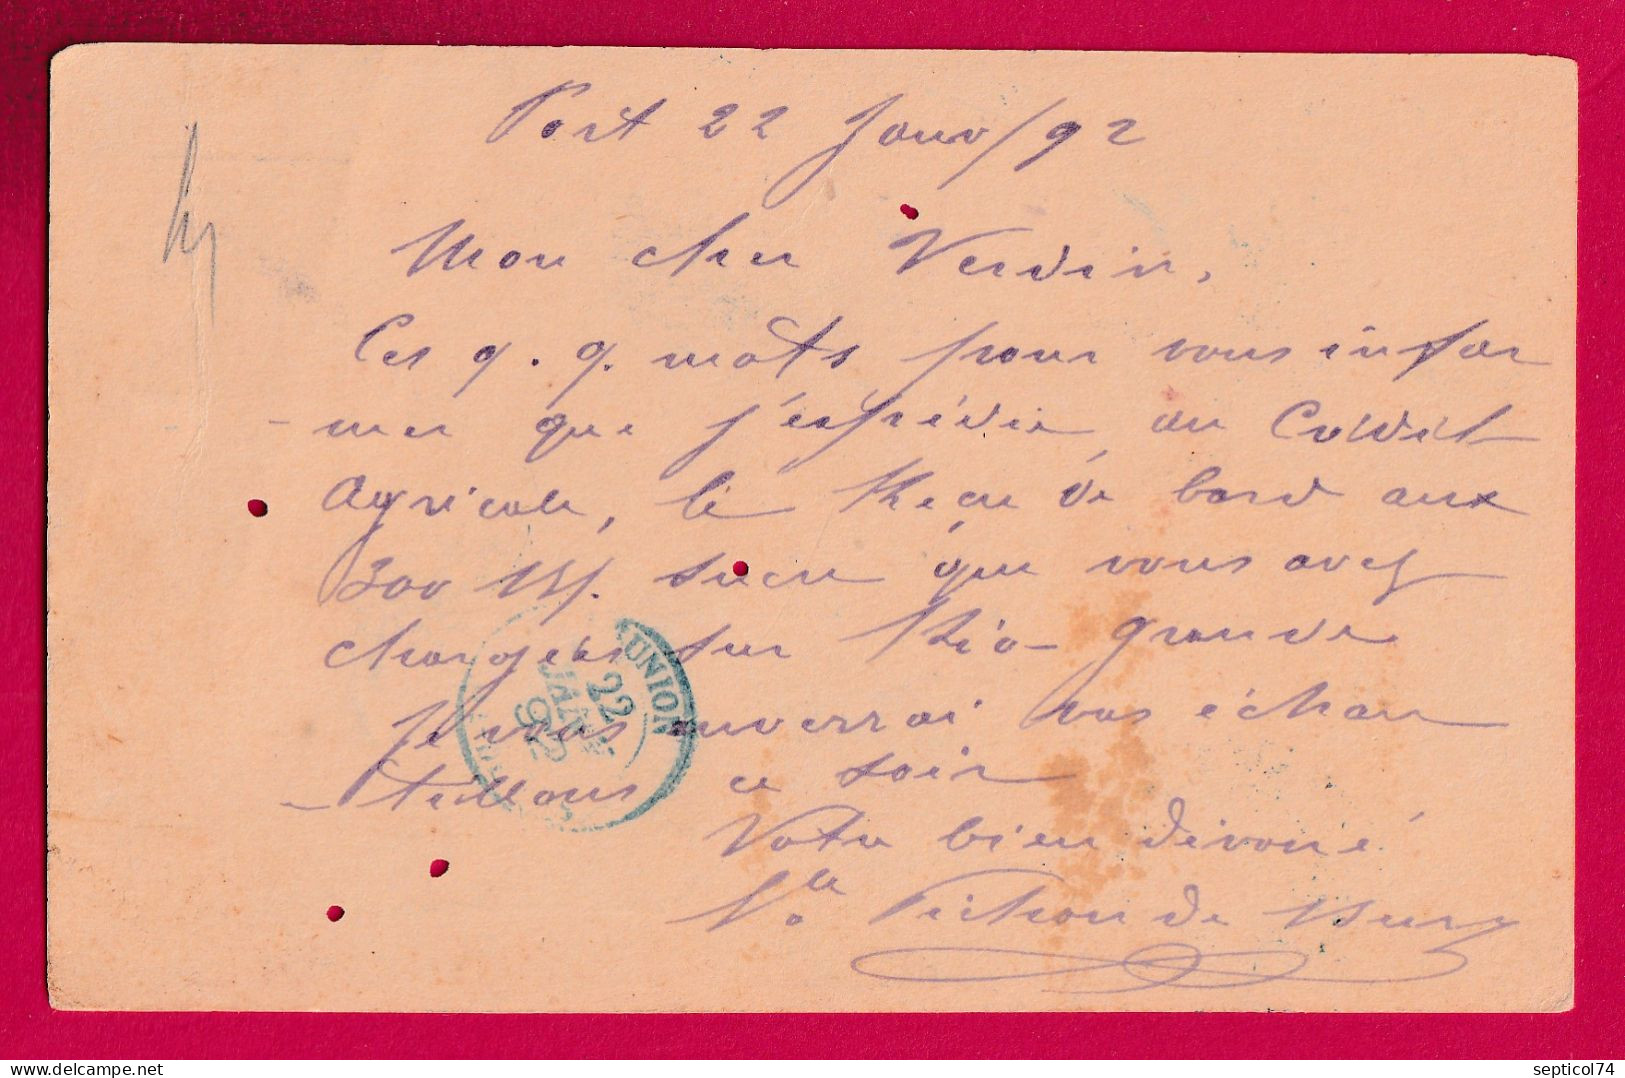 Port 22 Janv/92
Mon cher Verdin,
Ces q. q. mots pour vous infor
-mer que j'expédie au Crédit
Agricole, le Recu de bord aux
300 Bs/. sucre que vous avez
chargés sur Rio-Grande
Je vous enverrai vos échan
-tillons ce soir
Votre bien dévoué
Pichon de Bury
RÉUNION
22
JANV
92
septicol74